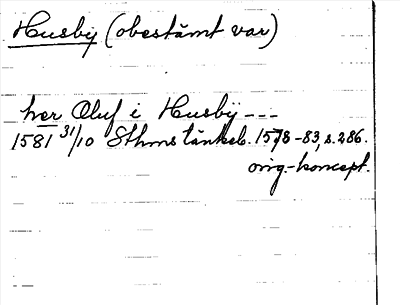 Husby (obestämt var)
her Oluf i Husbÿ ---
1581 31/10 Sthms tänkeb. 1578-83, s. 286.
orig.-koncept.